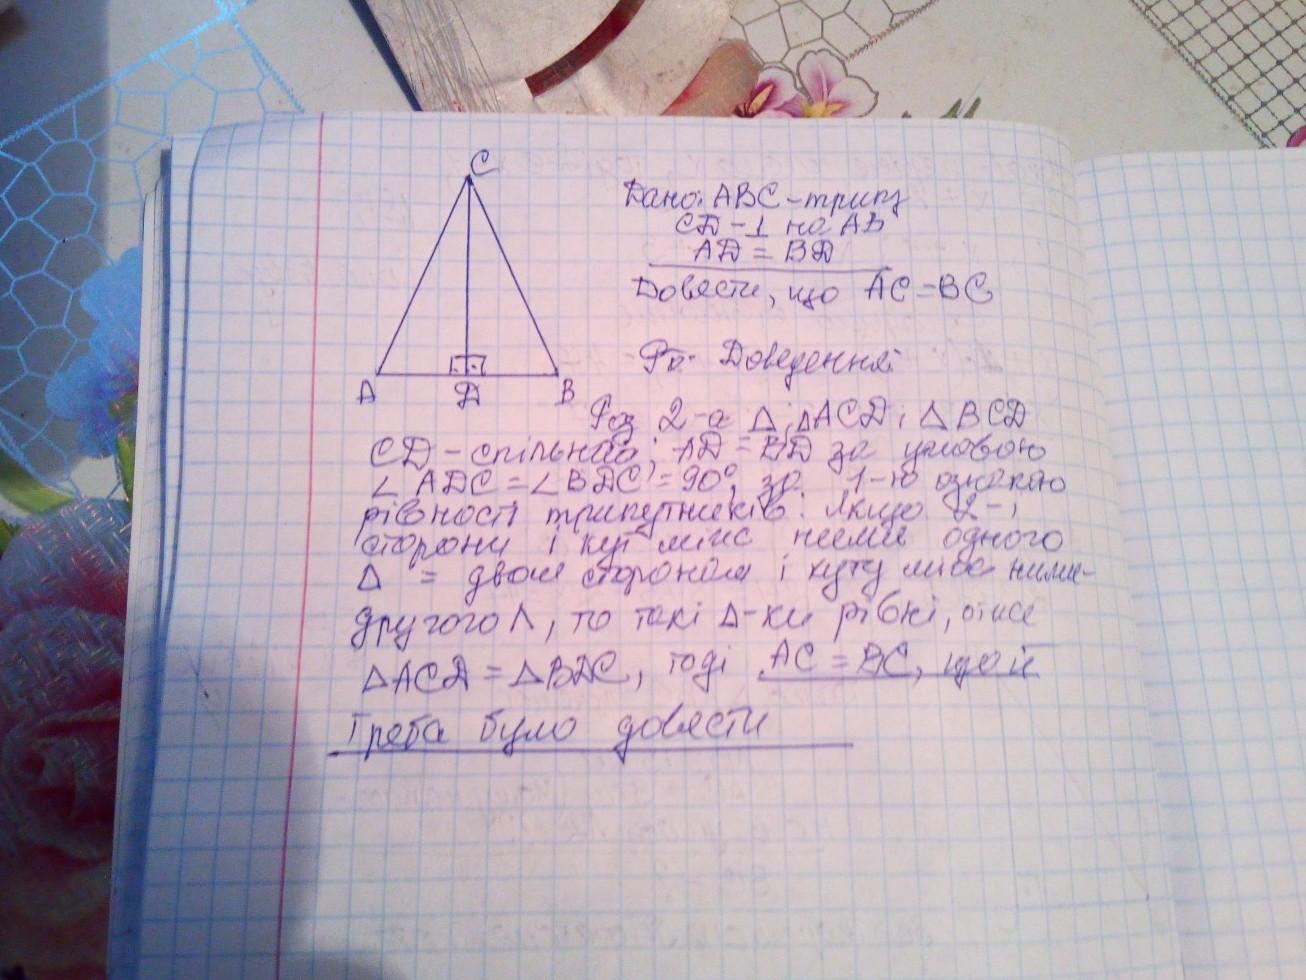 C
A
D
B
Дано: ABC – трик,
CD – ⊥ на AB
AD = BD
Довести, що AC = BC
Доведення:
Роз 2-а Δ: ΔACD і ΔBCD
CD – спільна; AD = BD за умовою
∠ADC = ∠BDC = 90°, за 1-ю ознакою
рівності трикутників: якщо 2-і
сторони і кут між ними одного
Δ = двом сторонам і куту між ними
другого Δ, то такі Δ-ки рівні, отже
ΔACD = ΔBDC, тоді AC = BC, що й
треба було довести